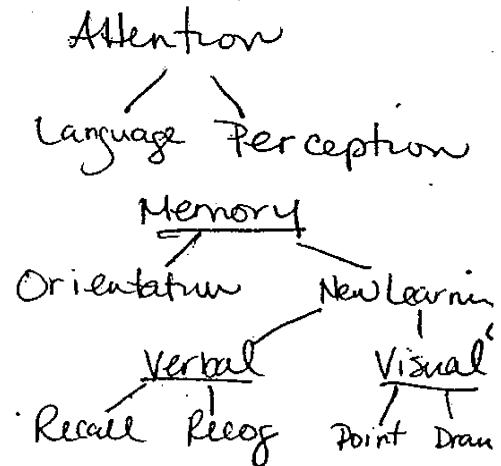 Attention
Language Perception
Memory
Orientation New Learnin
Verbal Visual
Recall Recog Point Draw